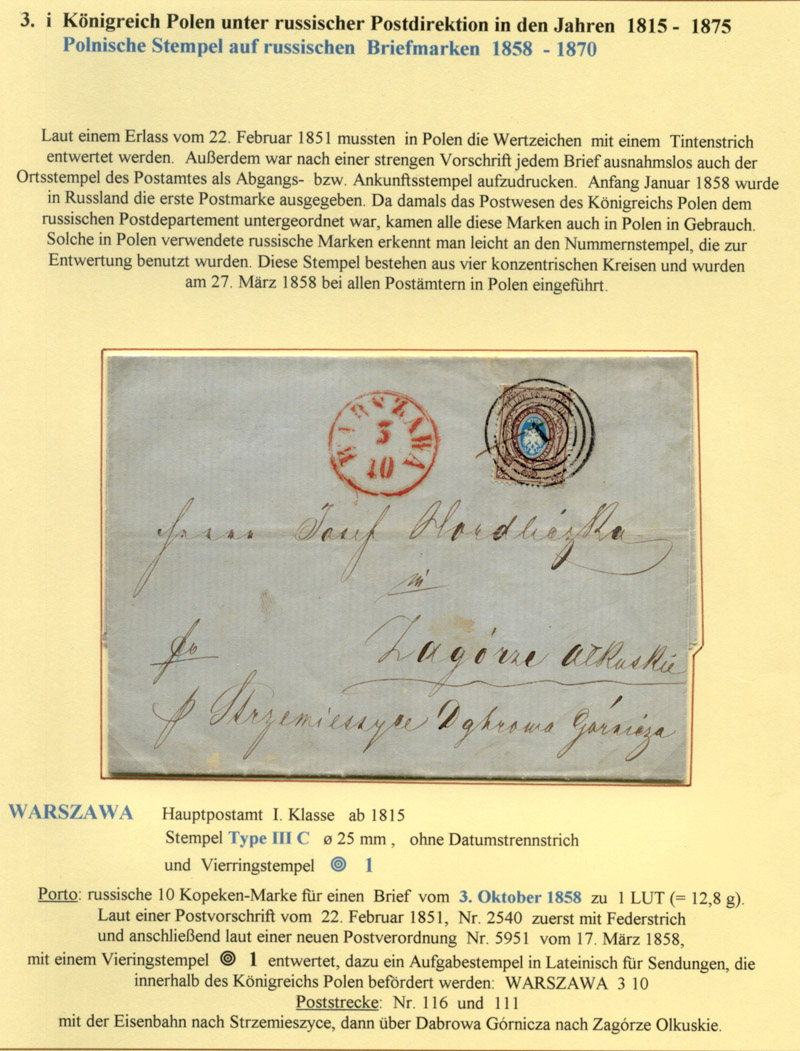 3. i Königreich Polen unter russischer Postdirektion in den Jahren 1815 - 1875
Polnische Stempel auf russischen Briefmarken 1858 - 1870
Laut einem Erlass vom 22. Februar 1851 mussten in Polen die Wertzeichen mit einem Tintenstrich
entwertet werden. Außerdem war nach einer strengen Vorschrift jedem Brief ausnahmslos auch der
Ortsstempel des Postamtes als Abgangs- bzw. Ankunftsstempel aufzudrucken. Anfang Januar 1858 wurde
in Russland die erste Postmarke ausgegeben. Da damals das Postwesen des Königreichs Polen dem
russischen Postdepartement untergeordnet war, kamen alle diese Marken auch in Polen in Gebrauch.
Solche in Polen verwendete russische Marken erkennt man leicht an den Nummernstempel, die zur
Entwertung benutzt wurden. Diese Stempel bestehen aus vier konzentrischen Kreisen und wurden
am 27. März 1858 bei allen Postämtern in Polen eingeführt.
WARSZAWA
3
10
Herrn Josef Nordliczka
in
Zagórze Olkuskie
fro
p Strzemieszyce Dąbrowa Górnicza
WARSZAWA Hauptpostamt I. Klasse ab 1815
Stempel Type III C ø 25 mm , ohne Datumstrennstrich
und Vierringstempel 1
Porto: russische 10 Kopeken-Marke für einen Brief vom 3. Oktober 1858 zu 1 LUT (= 12,8 g).
Laut einer Postvorschrift vom 22. Februar 1851, Nr. 2540 zuerst mit Federstrich
und anschließend laut einer neuen Postverordnung Nr. 5951 vom 17. März 1858,
mit einem Vieringstempel 1 entwertet, dazu ein Aufgabestempel in Lateinisch für Sendungen, die
innerhalb des Königreichs Polen befördert werden: WARSZAWA 3 10
Poststrecke: Nr. 116 und 111
mit der Eisenbahn nach Strzemieszyce, dann über Dabrowa Górnicza nach Zagórze Olkuskie.